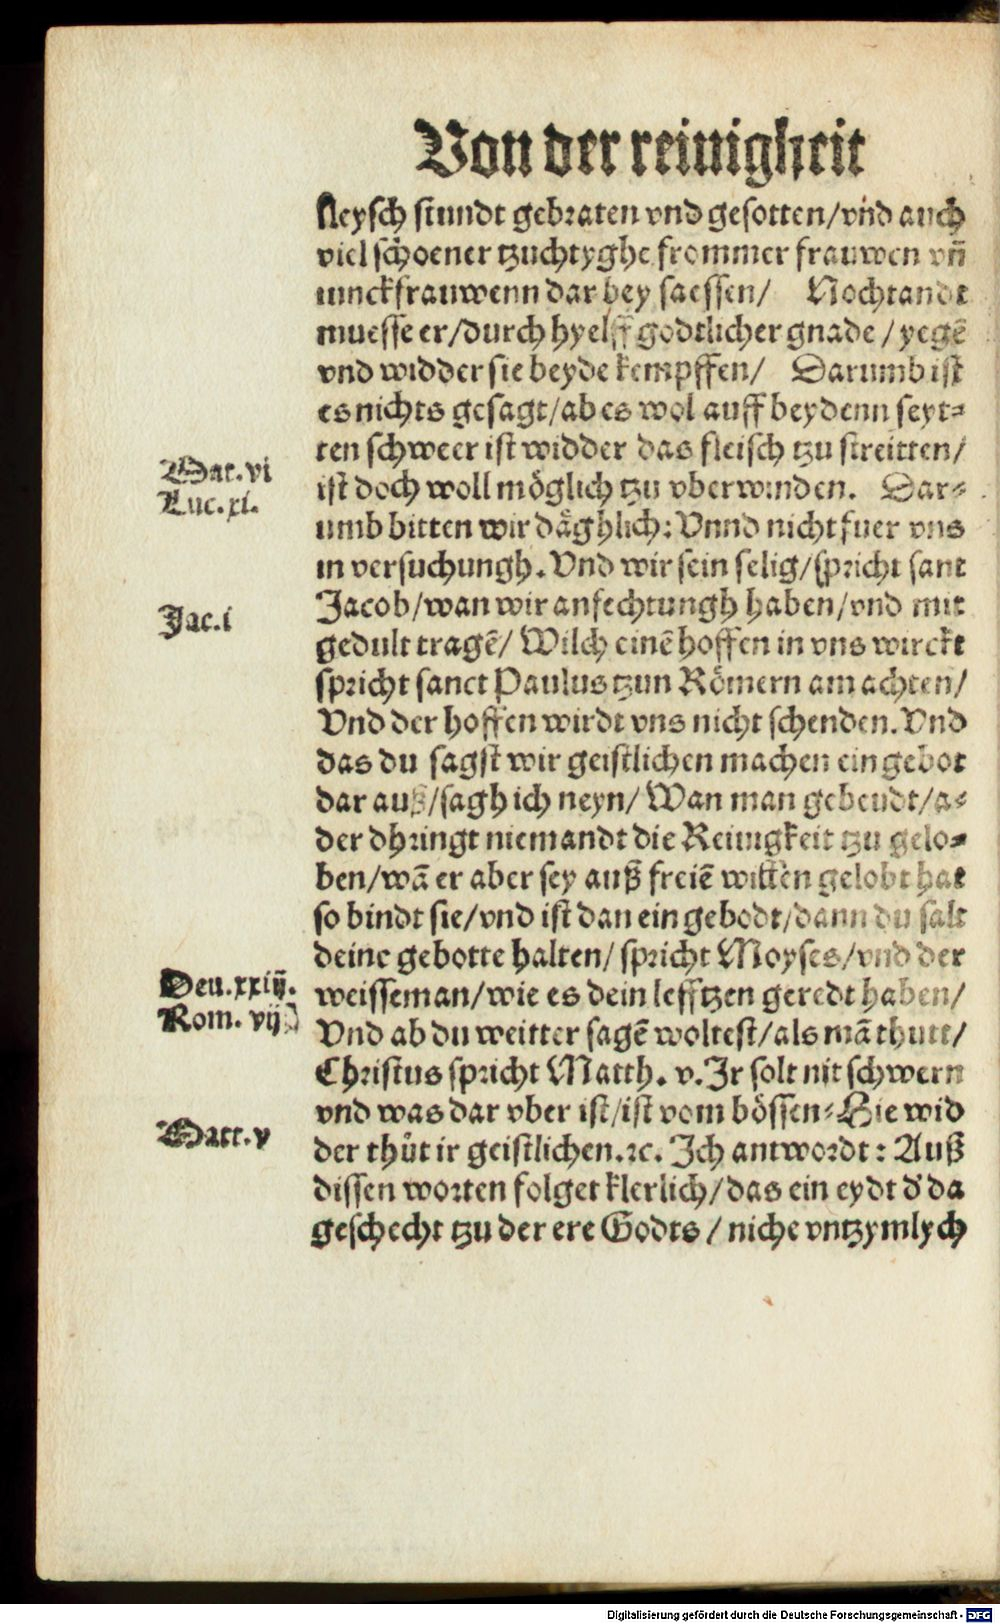 Von der reinigheit
fleysch stundt gebraten vnd gesotten/vñd auch
viel schoener tzuchtyghe frommer frauwen vñ
iunckfrauwenn dar bey saessen/ Nochtandt
muesse er/durch hyelff godtlicher gnade / yegē
vnd widder sie beyde kempffen/ Darumb ist
es nichts gesagt/ab es wol auff beydenn seyt⸗
ten schweer ist widder das fleisch tzu streitten/
Mat. vi
ist doch woll möglich tzu vberwinden. Dar⸗
Luc. xi.
umb bitten wir dåghlich: Vnnd nicht fuer vns
in versuchungh. Vnd wir sein selig/spricht sant
Jac. i
Jacob/wan wir anfechtungh haben/vnd mit
gedult tragē/ Wilch einē hoffen in vns wirckt
spricht sanct Paulus tzun Römern am achten/
Vnd der hoffen wirdt vns nicht schenden. Vnd
das du sagst wir geistlichen machen ein gebot
dar auß/sagh ich neyn/ Wan man gebeudt/a⸗
der dhringt niemandt die Reinigkeit tzu gelo⸗
ben/wā er aber sey auß freiē willen gelobt hat
so bindt sie/vnd ist dan ein gebodt/dann du salt
deine gebotte halten/ spricht Moyses/vnd der
Deu. xxiij.
weisseman/wie es dein lefftzen geredt haben/
Rom. vij
Vnd ab du weitter sagē woltest/als mā thutt/
Christus spricht Matth. v. Ir solt nit schwern
vnd was dar vber ist/ist vom bössen⸗Hie wid
Matt. v
der thůt ir geistlichen. ꝛc. Ich antwordt: Auß
dissen worten folget klerlich/das ein eydt d' da
geschecht tzu der ere Godts / niche vntzymlych
Digitalisierung gefördert durch die Deutsche Forschungsgemeinschaft - DFG